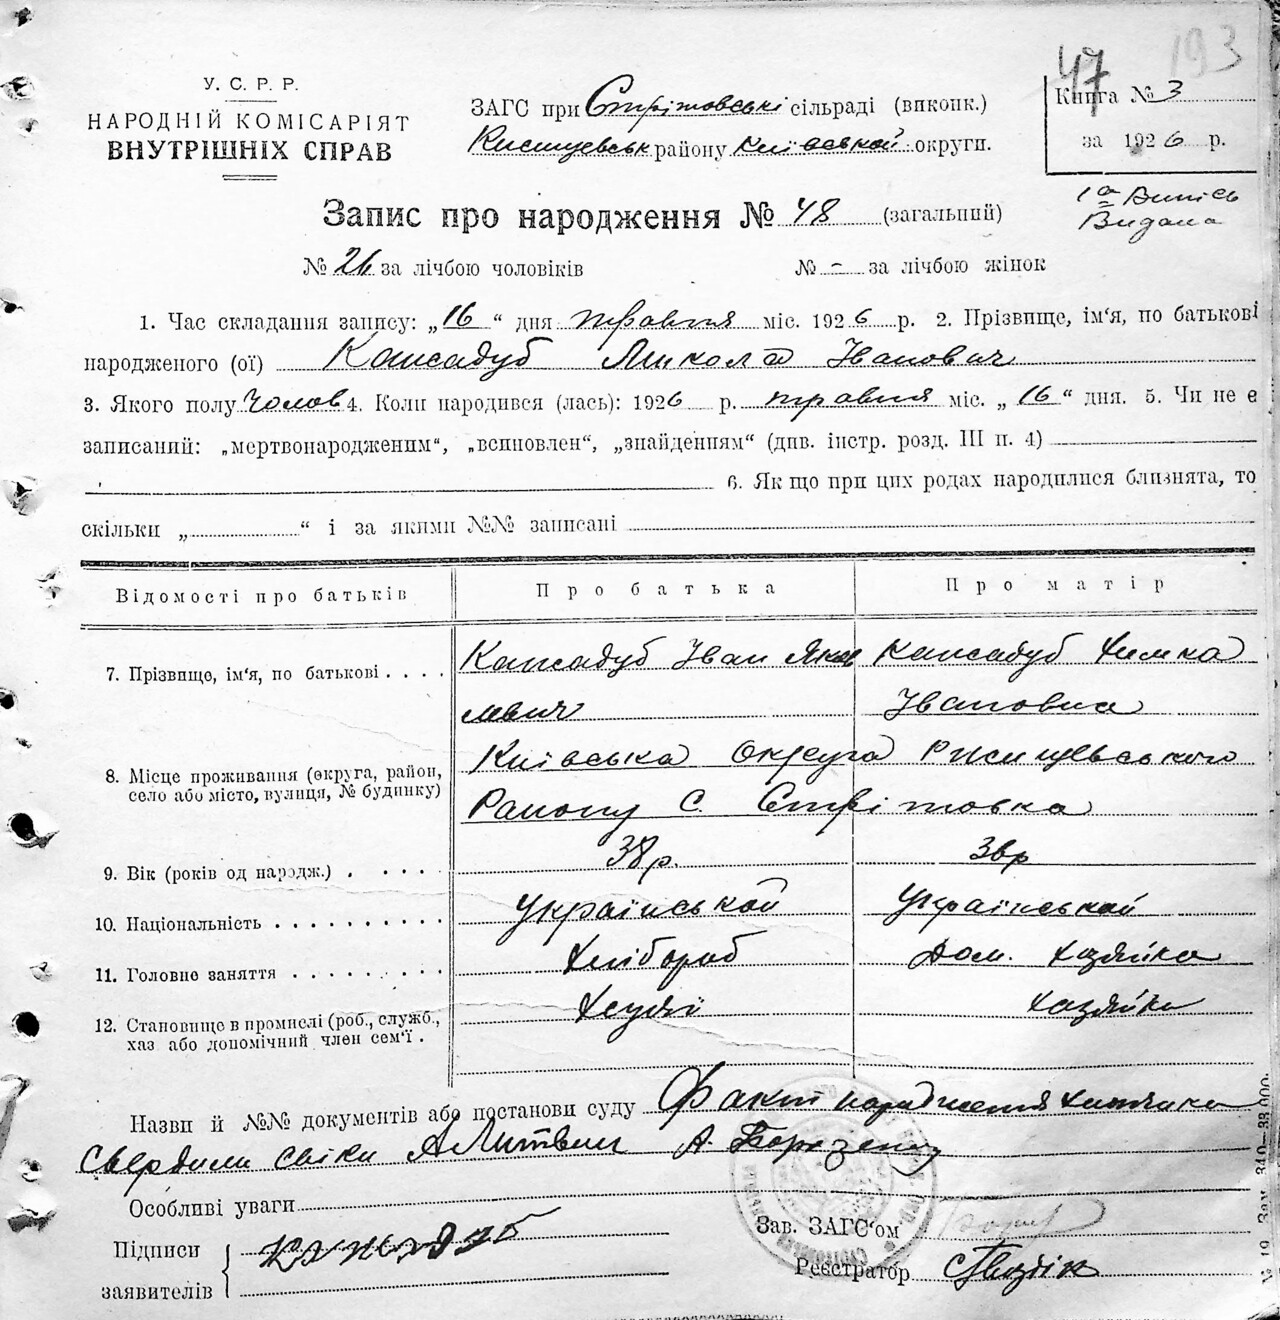 47 193
У. С. Р. Р.
НАРОДНІЙ КОМІСАРІЯТ
ВНУТРІШНІХ СПРАВ
ЗАГС при Стрітовські сільраді (виконк.)
району Київської округи.
Книга № 3
за 1926 р.
1а Випись
Видана
Запис про народження № 48 (загальний)
№ 26 за лічбою чоловіків № - за лічбою жінок
1. Час складання запису: „16“ дня травня міс. 1926 р. 2. Прізвище, ім‘я, по батькові
народженого (ої) Кансадуб Микола Іванович
3. Якого полу Чолов 4. Коли народився (лась): 1926 р. травня міс. „16“ дня. 5. Чи не є
записаний: „мертвонародженим“, „всиновлен“, „знайденням“ (див. інстр. розд. III п. 4)
6. Як що при цих родах народилися близнята, то
скільки „ “ і за якими №№ записані
Відомості про батьків Про батька Про матір
7. Прізвище, ім‘я, по батькові . . . . Кансадуб Іван Яков Кансадуб Химка
левич Івановна
8. Місце проживання (округа, район, село або місто, вулиця, № будинку) Київська Округа Ржищевського
Району С. Стрітовка
9. Вік (років од народж.) . . . . . 38 р. 38 р
10. Національність . . . . . . . . . Української Української
11. Головне заняття . . . . . . . . Хлібороб Дом. хазяйка
12. Становище в промислі (роб., служб., хаз або допомічний член сем‘ї . хазяйка
Назви й №№ документів або постанови суду Факт народження хлопчика
свердили свіки А Литвин А.
Особливі уваги
Підписи заявителів
Зав. ЗАГС‘ом
Реєстратор